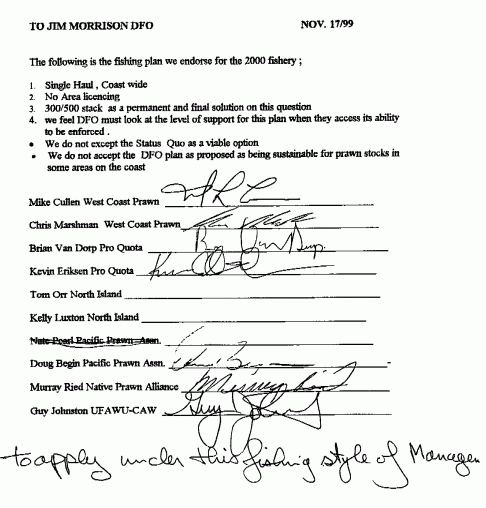 TO JIM MORRISON DFO NOV. 17/99
The following is the fishing plan we endorse for the 2000 fishery ;
1. Single Haul , Coast wide
2. No Area licencing
3. 300/500 stack as a permanent and final solution on this question
4. we feel DFO must look at the level of support for this plan when they access its ability
to be enforced .
• We do not except the Status Quo as a viable option
• We do not accept the DFO plan as proposed as being sustainable for prawn stocks in
some areas on the coast
Mike Cullen West Coast Prawn
Chris Marshman West Coast Prawn
Brian Van Dorp Pro Quota
Kevin Eriksen Pro Quota
Tom Orr North Island
Kelly Luxton North Island
Nate Pearl Pacific Prawn Assn.
Doug Begin Pacific Prawn Assn.
Murray Ried Native Prawn Alliance
Guy Johnston UFAWU-CAW Guy Johnston
to apply under this fishing style of Managem